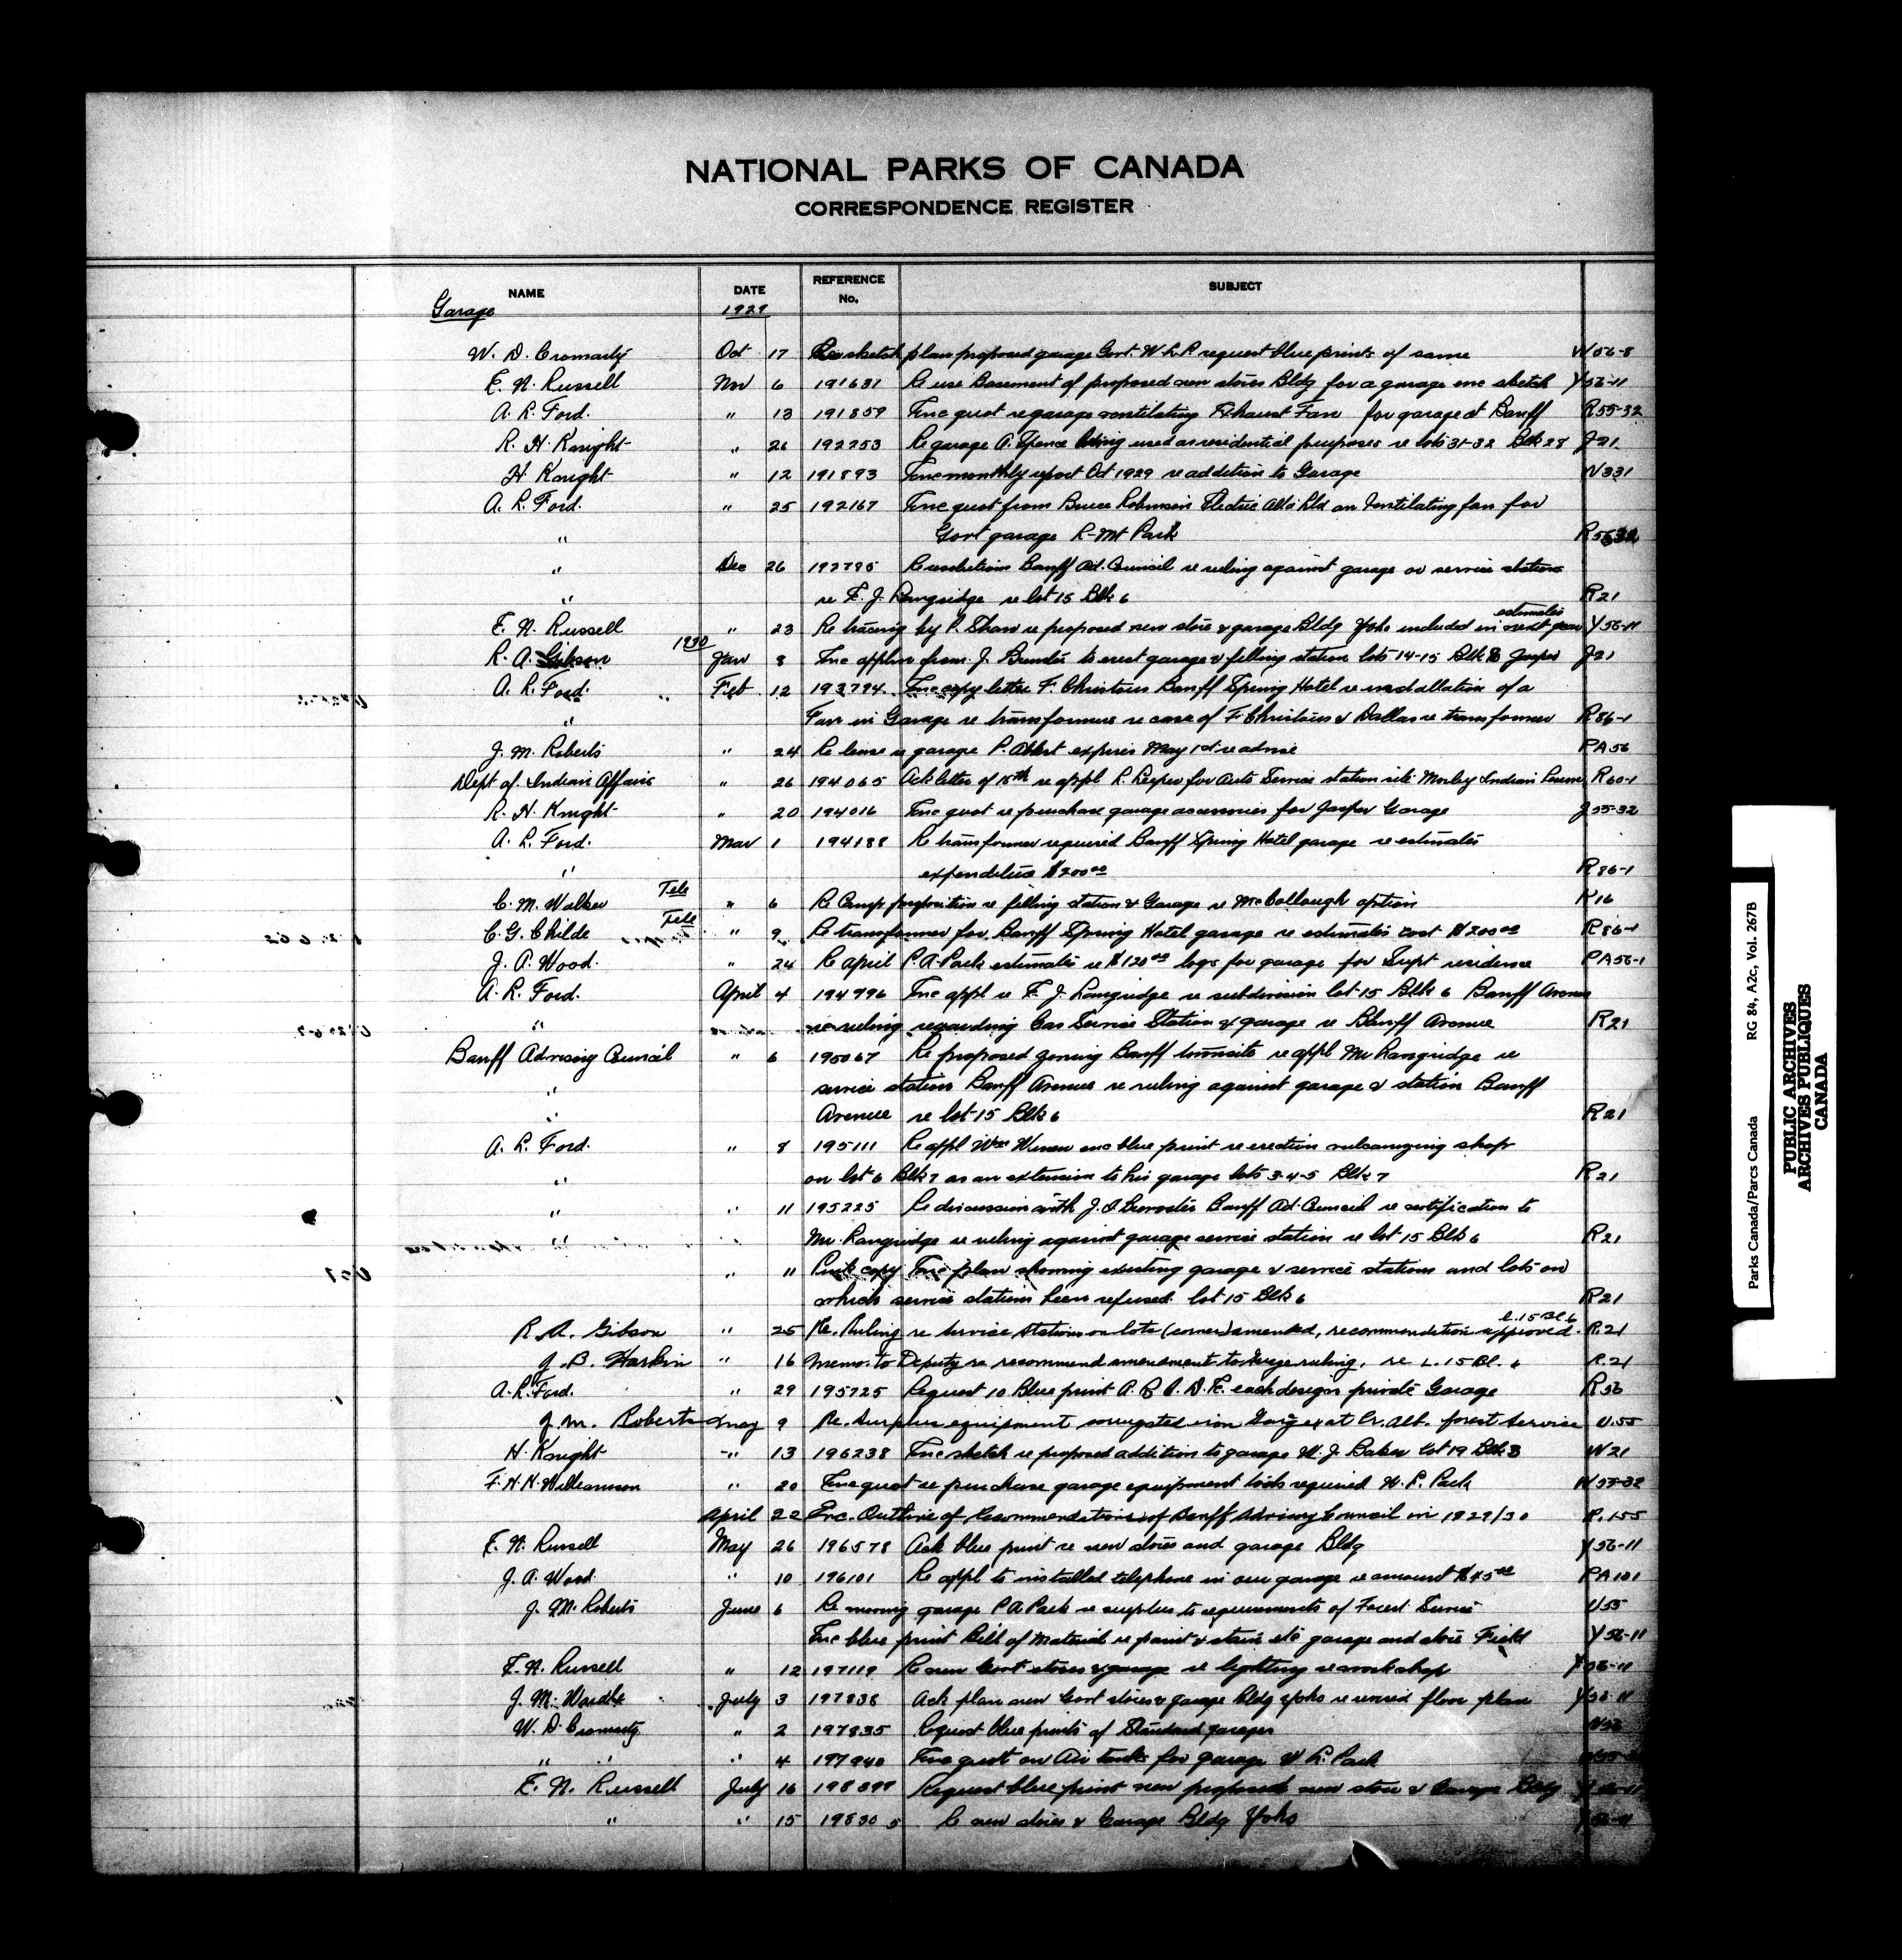 NATIONAL PARKS OF CANADA
CORRESPONDENCE REGISTER
NAME DATE REFERENCE No. SUBJECT
Garage 1929
W. D. Cromarty Oct 17 sketch plan proposed garage Govt. W.L.P. request blue prints of same W56-8
E. N. Russell Nov 6 191631 Re use Basement of proposed new stores Bldg for a garage enc sketch Y56-11
A. L. Ford. " 13 191859 Enc quot re garage ventilating Exhaust Fan for garage at Banff R55-32
R. H. Knight " 26 192253 Re garage A. Spence being used as residential purposes re lots 31-32 Blk 28 J21
H. Knight " 12 191893 Enc monthly report Oct 1929 re addition to Garage W331
A. L. Ford. " 25 192167 Enc quot from Bruce Robinson Electric Alta Ltd on Ventilating fan for
" Govt garage R-Mt Park
" Dec 26 192795 Re resolutions Banff Ad. Council re ruling against garage or service stations
" re F. J. Langridge re lot 15 Blk 6 R21
estimates
E. N. Russell " 23 Re tracing by P. Shaw re proposed new store & garage Bldg Yoho included in next year Y56-11
1930
R. A. Gibson Jan 8 Enc appln from J. to erect garage & filling station lots 14-15 Blk Jasper J21
A. L. Ford. " Feb 12 193794 Enc copy letter F. Christous Banff Spring Hotel re installation of a
" Fan in Garage re transformers re case of F. Christous & Dallas re transformer R86-1
J. M. Roberts " 24 Re lease re garage P. expires May 1st re advise PA56
Dept of Indian Affairs " 26 194065 Ack letter of 18th re appl L. Leeper for Auto Service station site Morley Indian R60-1
R. H. Knight " 20 194016 Enc quot re purchase garage accessories for Jasper Garage J55-32
A. L. Ford. Mar 1 194188 Re transformer required Banff Spring Hotel garage re estimates
" expenditure $200.00 R86-1
C. M. Walker Tele " 6 Re Camp proposition re filling station & Garage re McCollough option K16
C. G. Childe Tele " 9 Re transformer for Banff Spring Hotel garage re estimates cost $200.00 R86-1
J. A. Wood. " 24 Re April P.A. Park estimates re $120.00 logs for garage for Supt residence PA56-1
A. L. Ford. April 4 194996 Enc appl re F. J. Langridge re subdivision lot 15 Blk 6 Banff Avenue
" re ruling regarding Car Service Station & garage re Banff Avenue R21
Banff Advisory Council " 6 195067 Re proposed zoning Banff townsite re appl Mr Langridge re
" service station Banff Avenue re ruling against garage & station Banff
" Avenue re lot 15 Blk 6 R21
A. L. Ford. " 8 195111 Re appl Wm enc blue print re erection vulcanizing shop
" on lot 6 Blk 7 as an extension to his garage lots 3-4-5 Blk 7 R21
" " 11 195225 Re discussion with J. Banff Ad. Council re notification to
" Mr. Langridge re ruling against garage service station re lot 15 Blk 6 R21
" 11 copy Enc plan showing existing garage & service stations and lots on
which service stations been refused. lot 15 Blk 6 R21
L.15 Bl.6
R. A. Gibson " 25 Re. Ruling re Service Stations on lots (corner) amended, recommendation approved. R.21
J. B. Harkin " 16 Memo. to Deputy re recommend amendment to ruling, re L. 15 Bl. 6 R.21
A. L. Ford. " 29 195725 Request 10 Blue print A. B. C. D. E. each design private Garage R56
J. M. Roberts May 9 Re. Surplus equipment corrugated iron at Cr. Alb. forest Service U.55
H. Knight " 13 196238 Enc sketch re proposed addition to garage W. J. Baker Lot 19 Blk 3 W21
F. H. H. Williamson " 20 Enc quot re purchase garage equipment tools required W. L. Park W55-32
April 22 Enc. Outline of Recommendations of Banff Advisory Council in 1929/30 R.155
E. N. Russell May 26 196578 Ack blue print re new stores and garage Bldg Y56-11
J. A. Wood. " 10 196101 Re appl to installed telephone in our garage re amount $45.00 PA101
J. M. Roberts June 6 Re moving garage P A Park re surplus to requirements of Forest Service U55
Enc blue print Bill of Material re paint & stain etc garage and store Field Y56-11
E. N. Russell " 12 197119 Re new Govt stores & garage re lighting re workshop Y56-11
J. M. Wardle July 3 197838 Ack plan new Govt stores & garage Bldg Yoho re revised floor plan Y56-11
W. D. Cromarty " 2 197835 Request blue prints of Standard garages W56
" " " 4 197940 Enc quot on Air tanks for garage W. L. Park
E. N. Russell July 16 198399 Request blue print new proposed new store & Garage Bldg
" " 15 198305 Re new stores & Garage Bldg Yoho
Parks Canada/Parcs Canada RG 84, A2c, Vol. 267B
PUBLIC ARCHIVES
ARCHIVES PUBLIQUES
CANADA